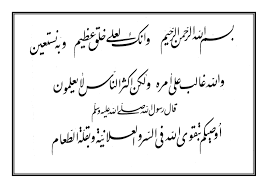 بسم الله الرحمن الرحيم وانك لعلى خلق عظيم وبه نستعين
والله غالب على امره ولكن اكثر الناس لا يعلمون
قال رسول الله صلى الله عليه وسلم
أوصيكم بتقوى الله فى السر والعلانية وبقلة الطعام